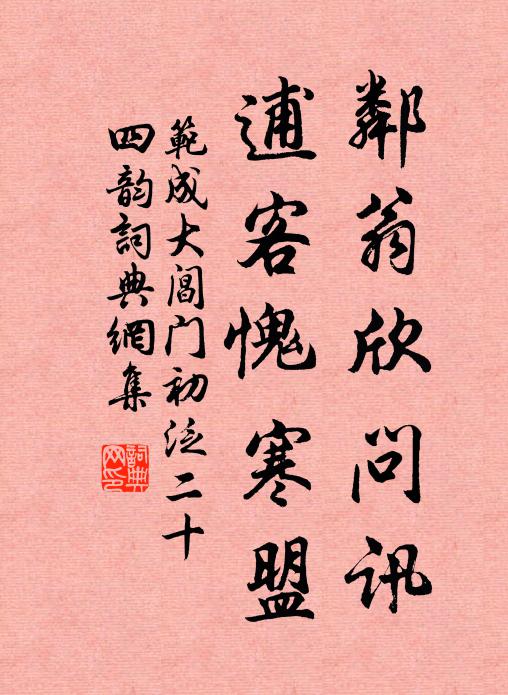 鄰翁欣問訊
逋客愧寒盟
範成大閶門初泛二十
四韵詞典網集
詞典
网印